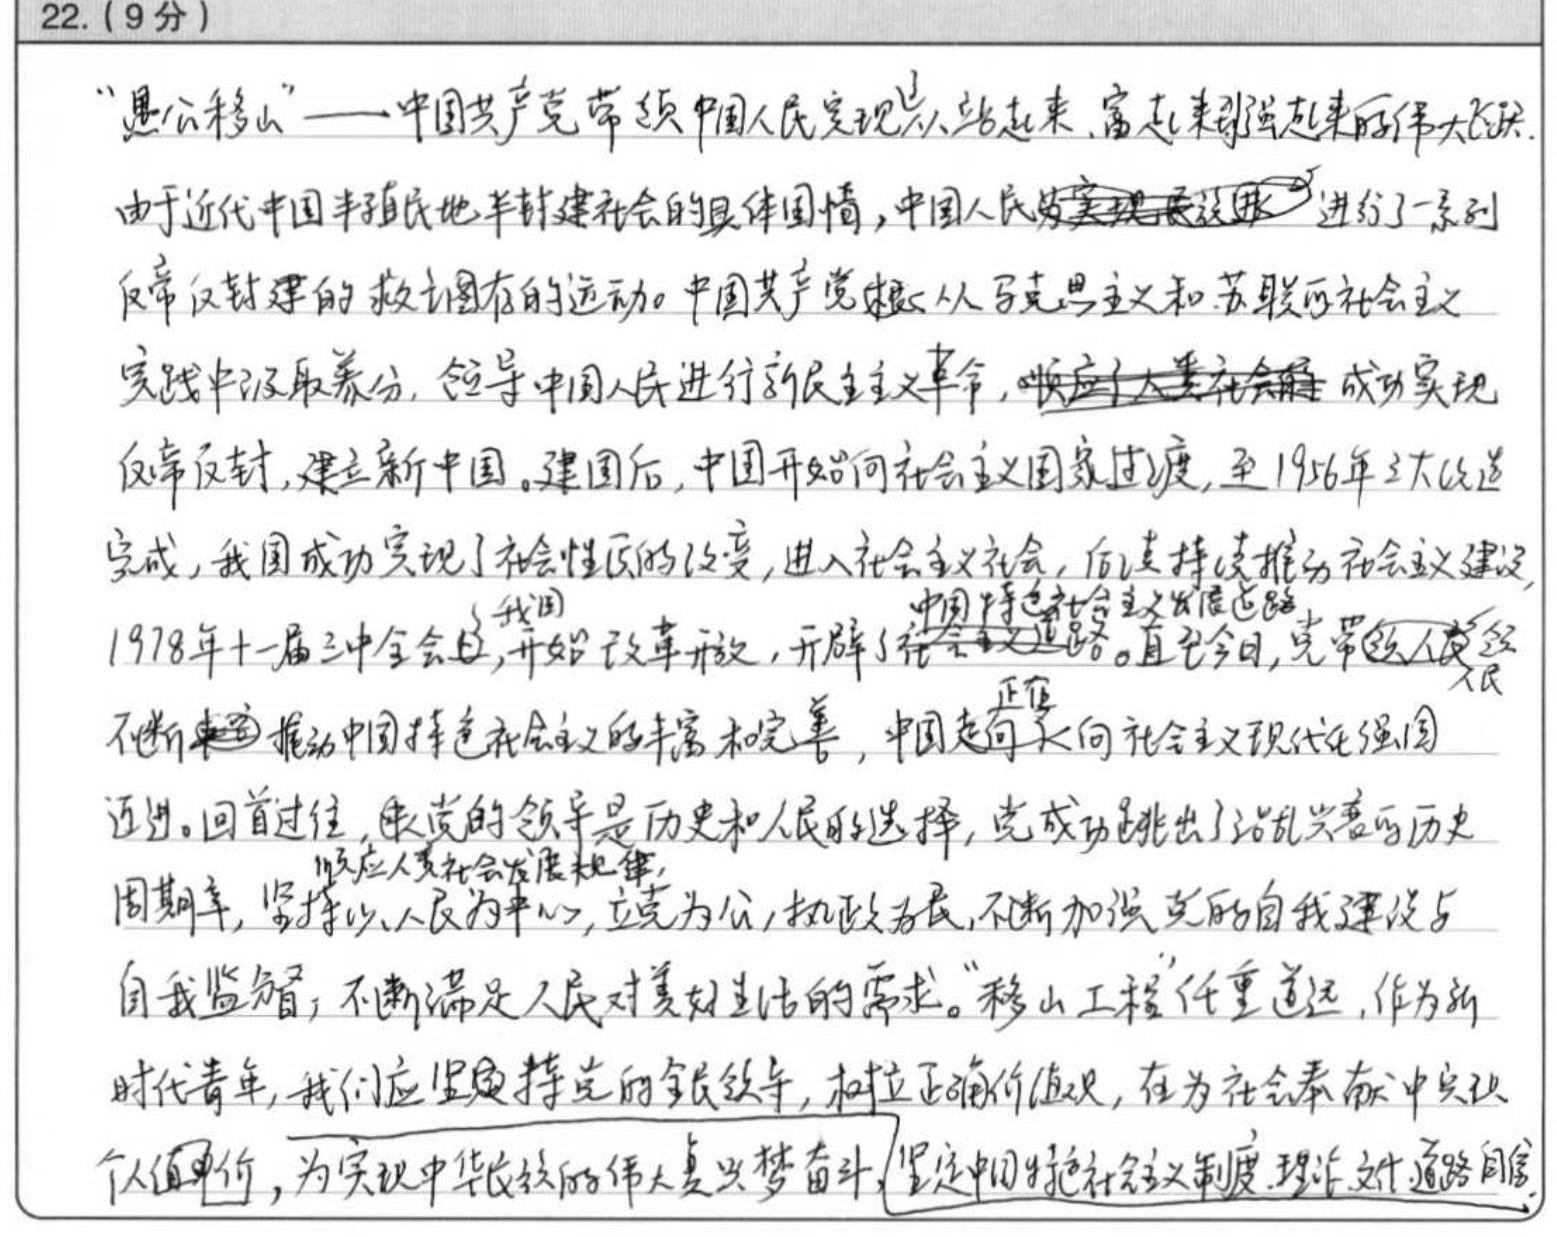 22.(9分)
“愚公移山”——中国共产党带领中国人民实现了从站起来、富起来到强起来的伟大飞跃.
由于近代中国半殖民地半封建社会的具体国情,中国人民进行了一系列
反帝反封建的救亡图存的运动。中国共产党从马克思主义和苏联的社会主义
实践中汲取养分,领导中国人民进行新民主主义革命,成功实现
反帝反封,建立新中国。建国后,中国开始向社会主义国家过渡,至1956年三大改造
完成,我国成功实现了社会性质的改变,进入社会主义社会,后续持续推动社会主义建设,
1978年十一届三中全会,我国开始改革开放,开辟了中国特色社会主义发展道路。直至今日,党带领人民
不断推动中国特色社会主义的丰富和完善,中国正在向社会主义现代化强国
迈进。回首过往,党的领导是历史和人民的选择,党成功跳出了治乱兴衰的历史
周期率,顺应人类社会发展规律,坚持以人民为中心,立党为公,执政为民,不断加强党的自我建设与
自我监督,不断满足人民对美好生活的需求。“移山工程”任重道远,作为新
时代青年,我们应坚持党的全民领导,树立正确价值观,在为社会奉献中实现
个人值价,为实现中华民族的伟大复兴梦奋斗,坚定中国特色社会主义制度、理论、文化、道路自信.